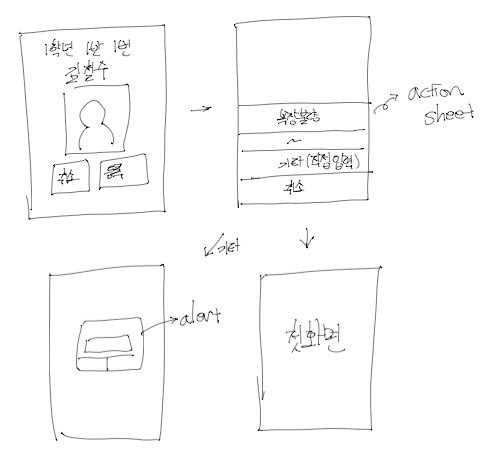 1학년 1반 1번
김철수
취소
복장불량
~
기타(직접입력)
취소
action
sheet
기타
alert
첫화면